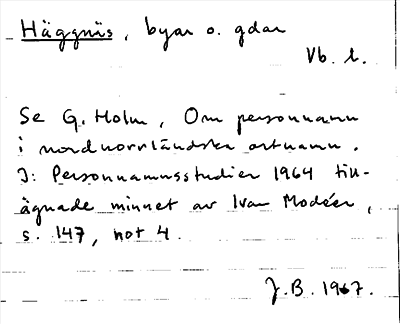 Häggnäs, byar o. gdar
Vb. l.
Se G. Holm, Om personnamn
i nordnorrländska ortnamn.
I: Personnamnsstudier 1964 till-
ägnade minnet av Ivar Modéer,
s. 147, not 4.
J.B. 1967.